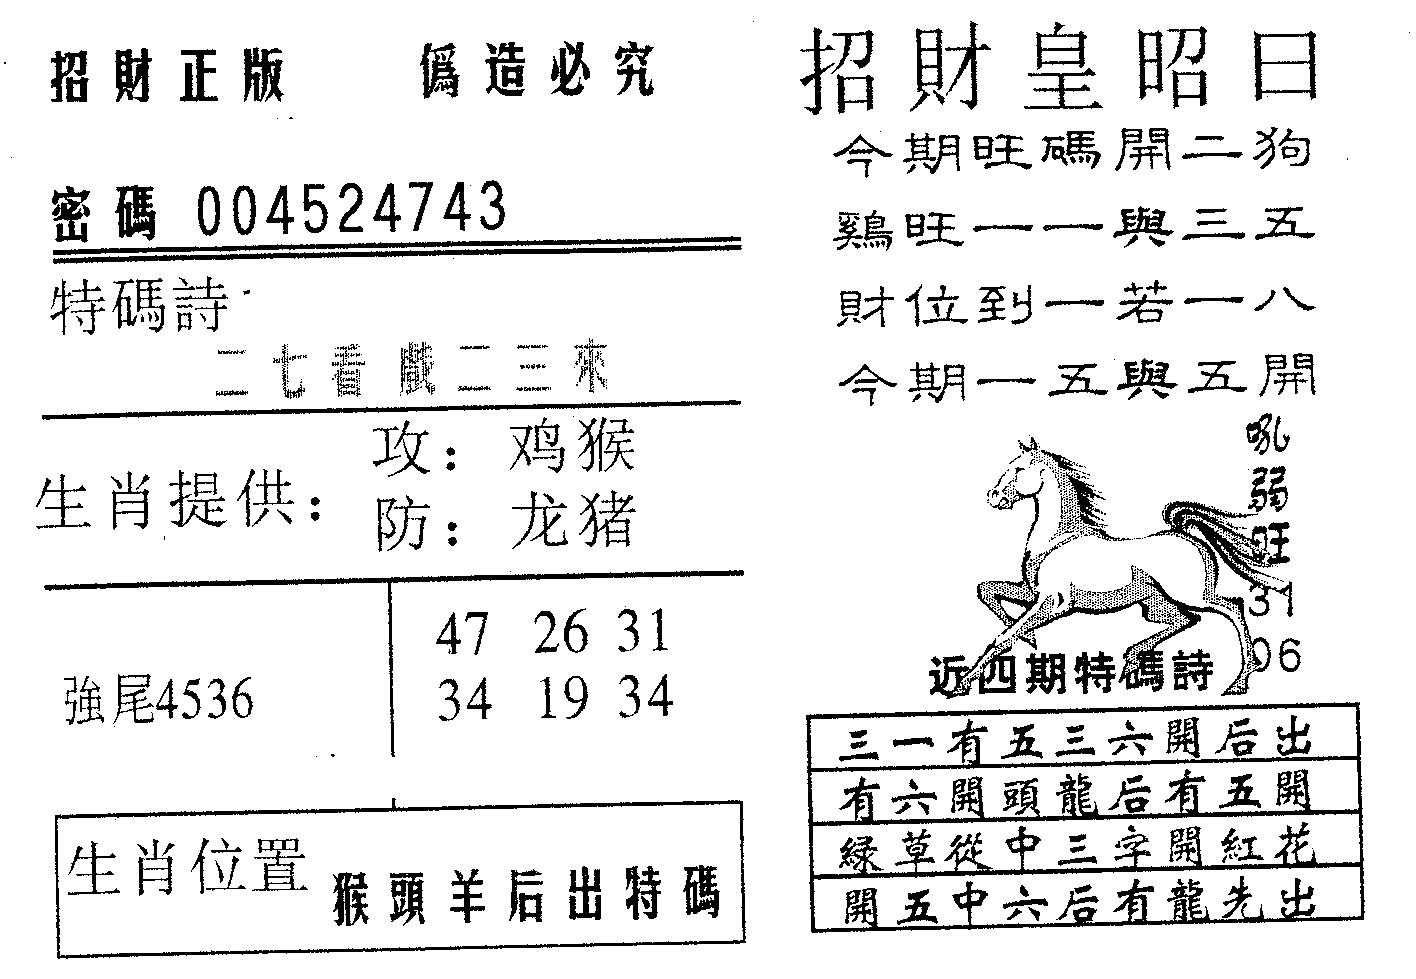 招財正版 僞造必究
密碼 004524743
特碼詩
二七看戲二三來
生肖提供：
攻：鸡猴
防：龙猪
強尾4536
47 26 31
34 19 34
生肖位置
猴頭羊后出特碼
招財皇昭曰
今期旺碼開二狗
鷄旺一一與三五
財位到一若一八
今期一五與五開
吼弱旺
31
06
近四期特碼詩
三一有五三六開后出
有六開頭龍后有五開
緑草從中三字開紅花
開五中六后有龍先出